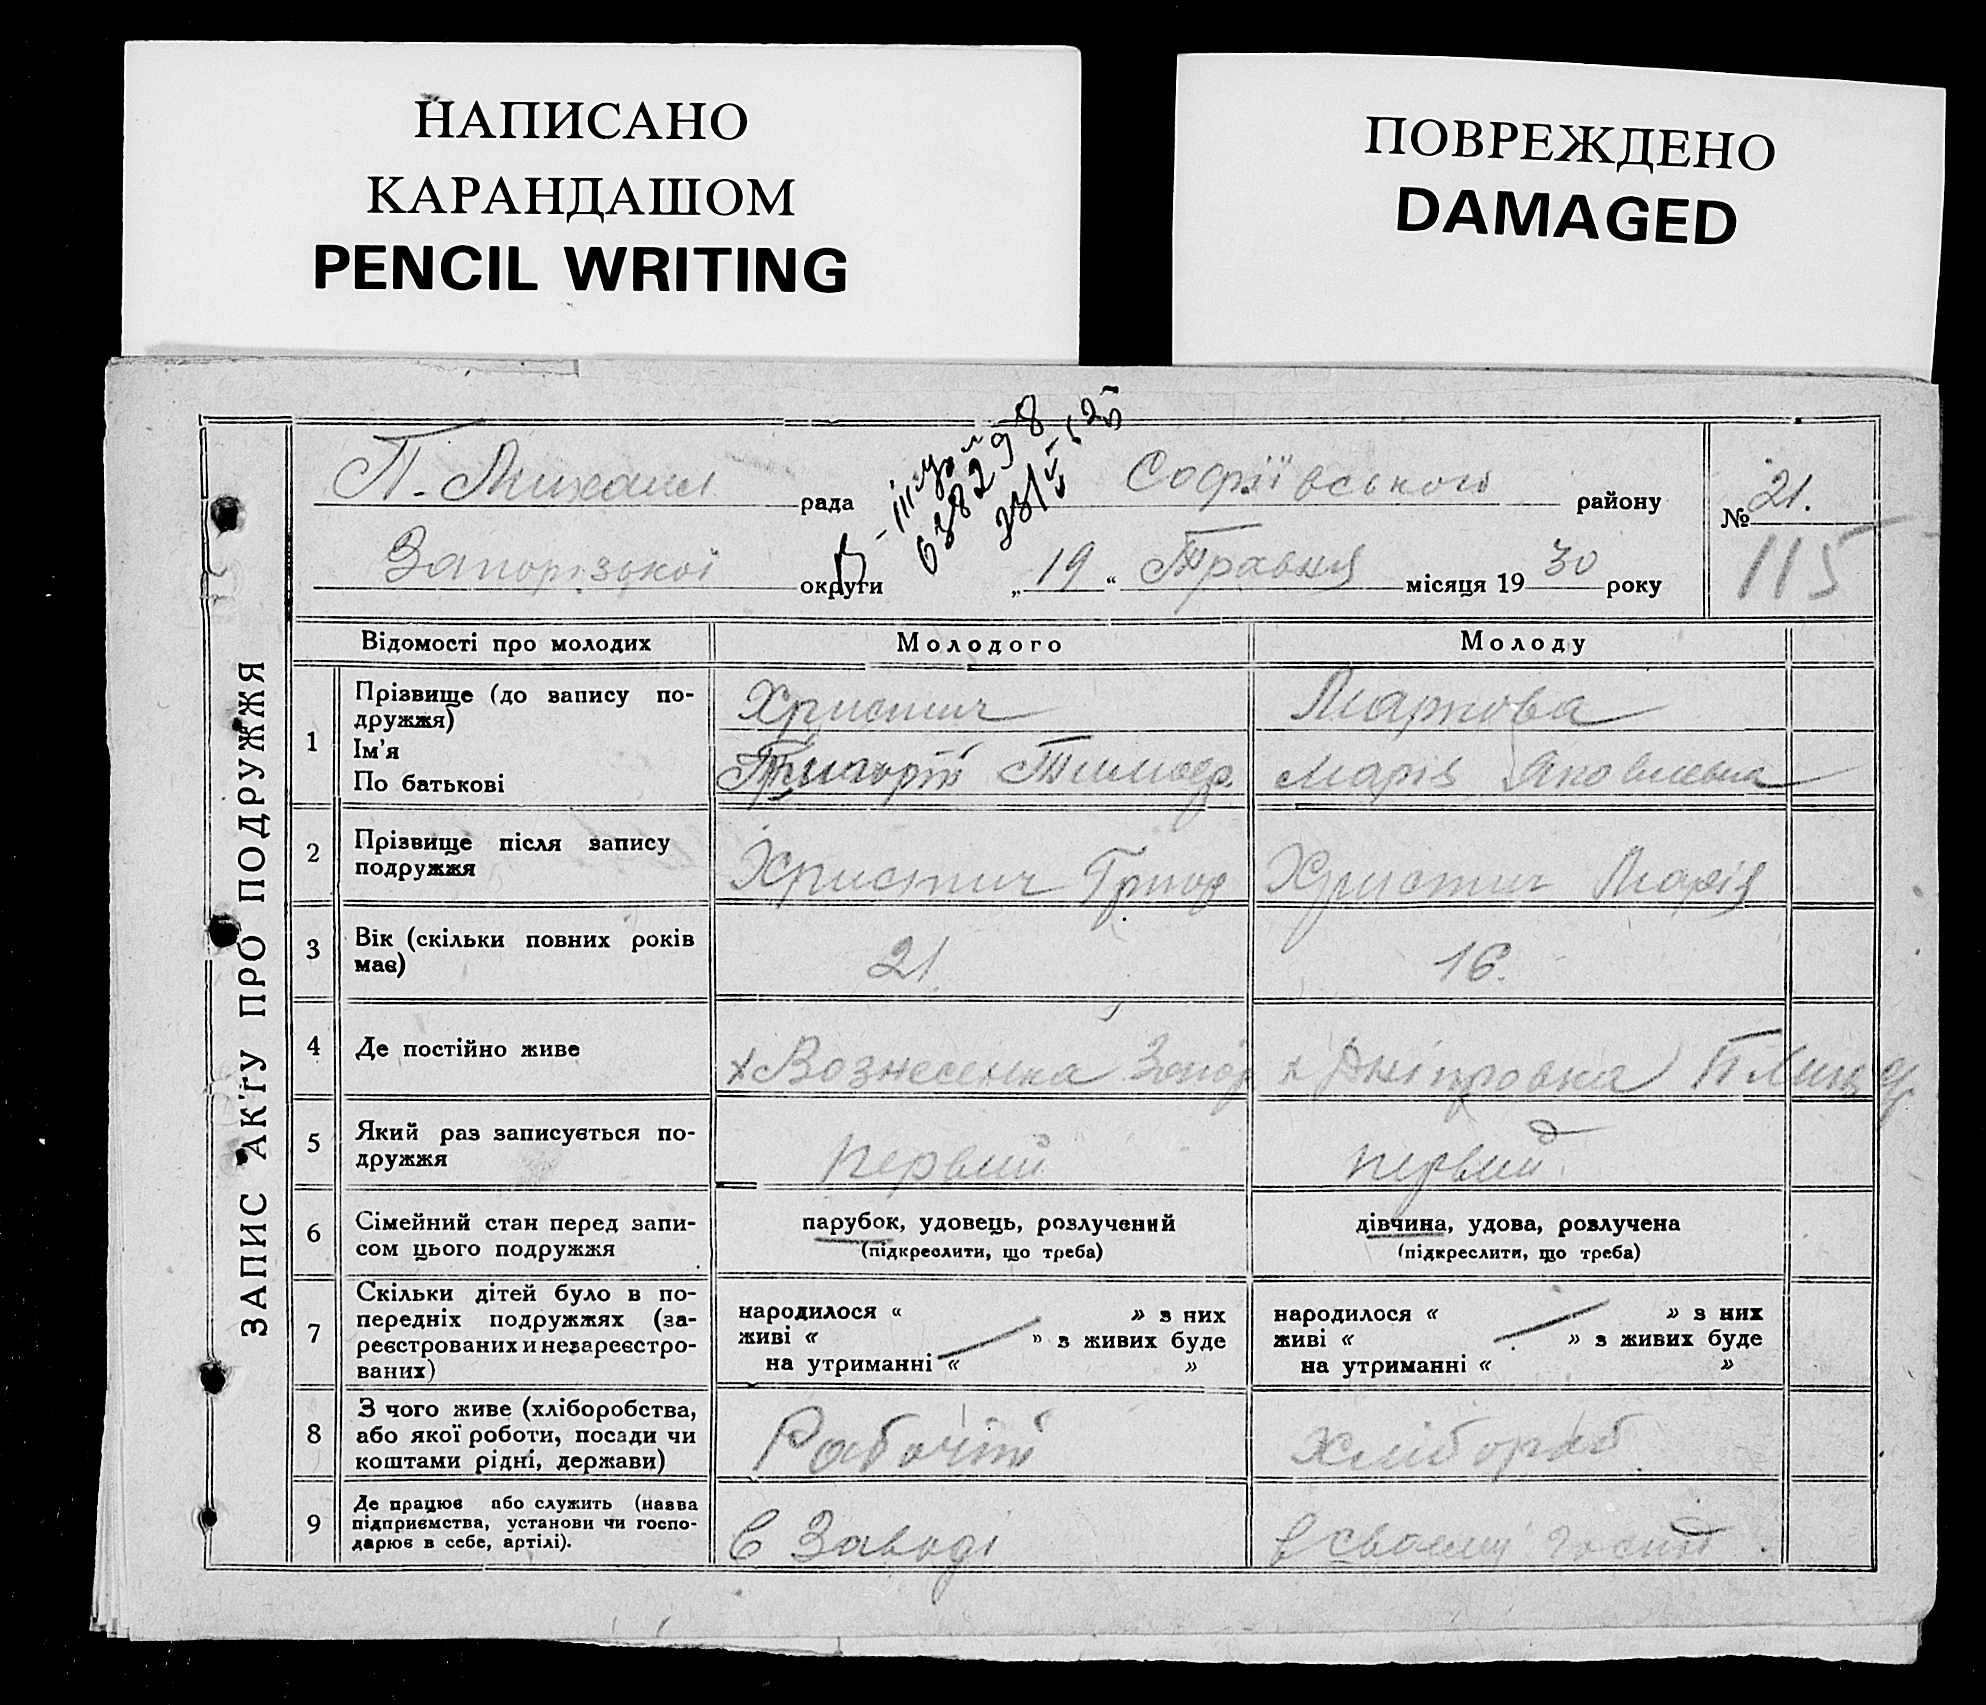 НАПИСАНО
КАРАНДАШОМ
PENCIL WRITING
ПОВРЕЖДЕНО
DAMAGED
ЗАПИС АКТУ ПРО ПОДРУЖЖЯ
П. Михаил рада Софіївського району
№ 21.
638298
Запорізької округи „19“ Травня місяця 1930 року
115
Відомості про молодих Молодого Молоду
1 Прізвище (до запису по-
дружжя) Христич Маркова
Ім'я
По батькові Григорій Тимоф. Марія Яковлевна
2 Прізвище після запису
подружжя Христич Григор Христич Марія
3 Вік (скільки повних років
має) 21. 16.
4 Де постійно живе х Вознесенка Запор х Дніпровка П
5 Який раз записується по-
дружжя первий первий
6 Сімейний стан перед запи-
сом цього подружжя
парубок, удовець, розлучений
(підкреслити, що треба)
дівчина, удова, розлучена
(підкреслити, що треба)
7 Скільки дітей було в по-
передніх подружжях (за-
реєстрованих и незареєстро-
ваних)
народилося « » з них
живі « » з живих буде
на утриманні « »
народилося « » з них
живі « » з живих буде
на утриманні « »
8 З чого живе (хліборобства,
або якої роботи, посади чи
коштами рідні, держави) Рабочій Хлібороб
9 Де працює або служить (назва
підприємства, установи чи госпо-
дарює в себе, артілі). В Заводі в своему госпо